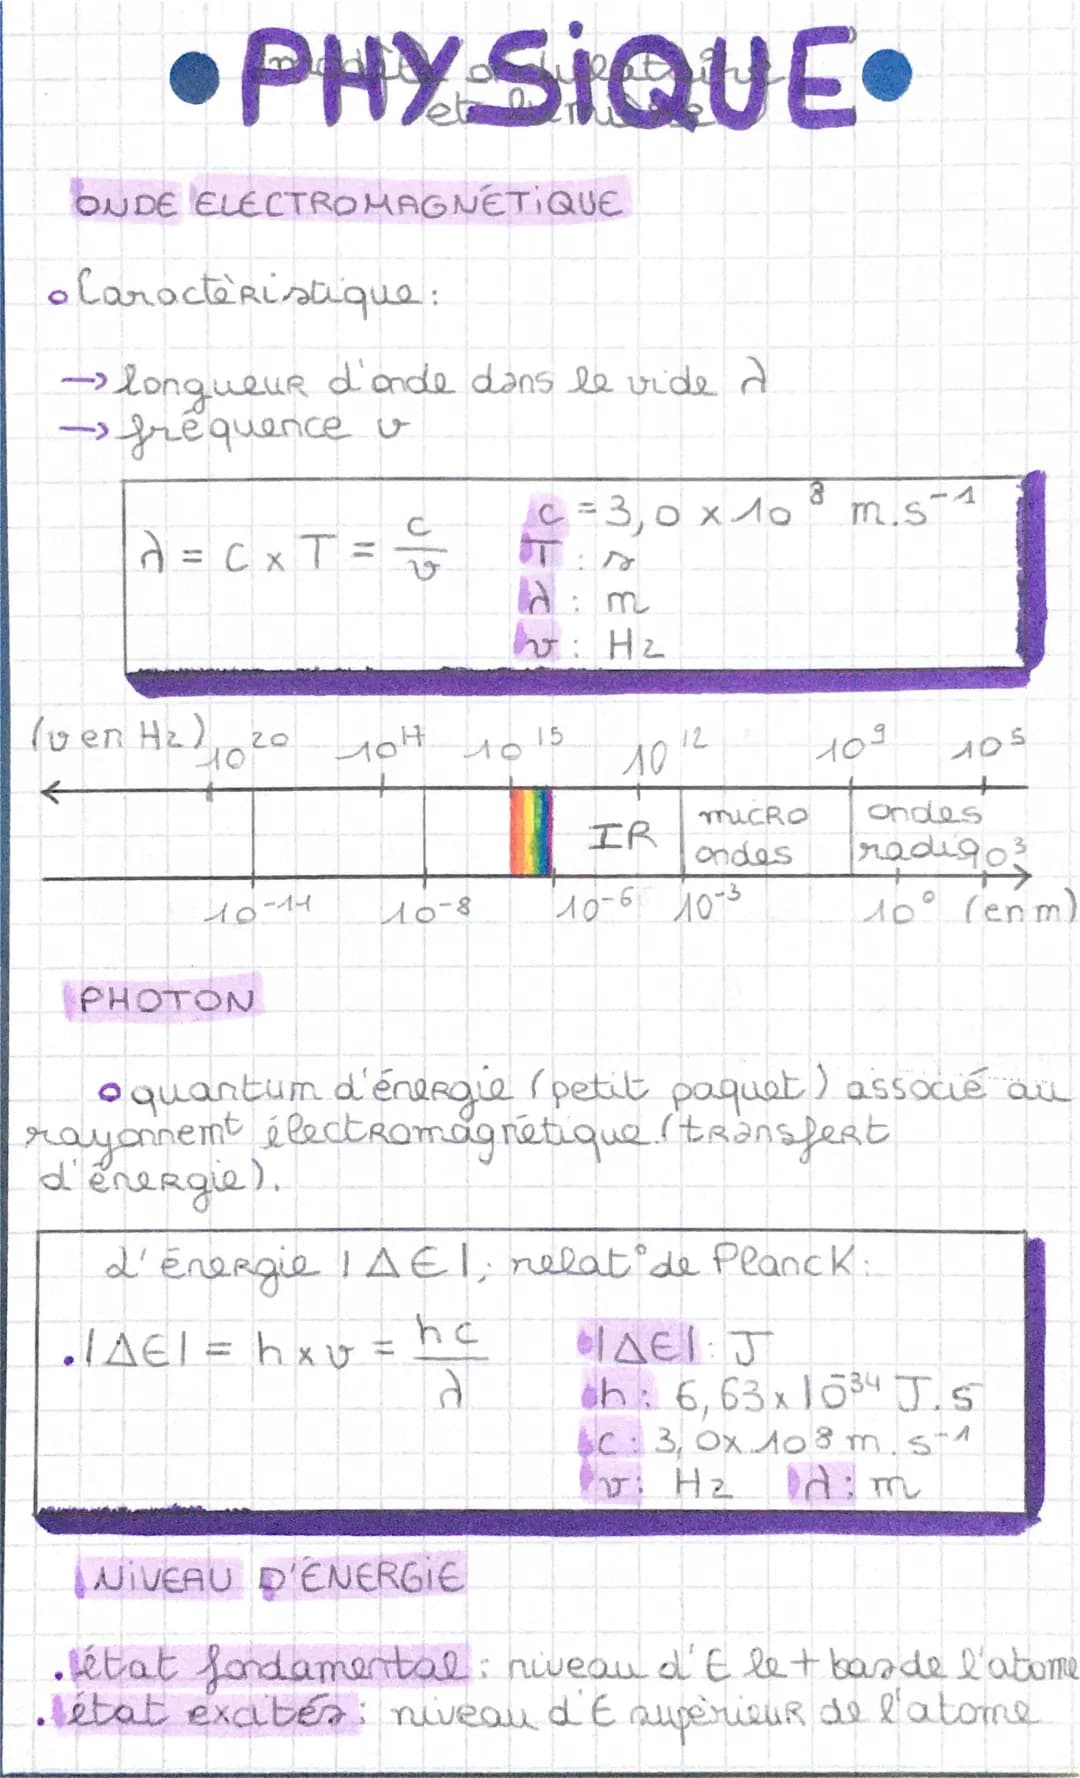 • PHYSiQUE •
modèle ondulatoire
et lumière
ONDE ELECTROMAGNÉTiQUE
Caractèristique :
→ longueur d'onde dans le vide λ
→ fréquence ν
λ = C × T = c/ν
c = 3,0 × 10⁸ m.s⁻¹
T : s
λ : m
ν : Hz
(ν en Hz) 10²⁰ 10¹⁷ 10¹⁵ 10¹² 10⁹ 10⁵
IR micro ondes ondes radio 10³
10⁻¹¹ 10⁻⁸ 10⁻⁶ 10⁻³ 10⁰ (en m)
PHOTON
quantum d'énergie (petit paquet) associé au
rayonnemt électromagnétique (transfert
d'énergie).
d'énergie |ΔE|; relat° de Planck :
. |ΔE| = h × ν = hc/λ
|ΔE| : J
h : 6,63 × 10⁻³⁴ J.s
c : 3,0 × 10⁸ m.s⁻¹
ν : Hz λ : m
NiVEAU D'ÉNERGiE
. état fondamental : niveau d'E le + bas de l'atome
. état excités : niveau d'E supèrieur de l'atome